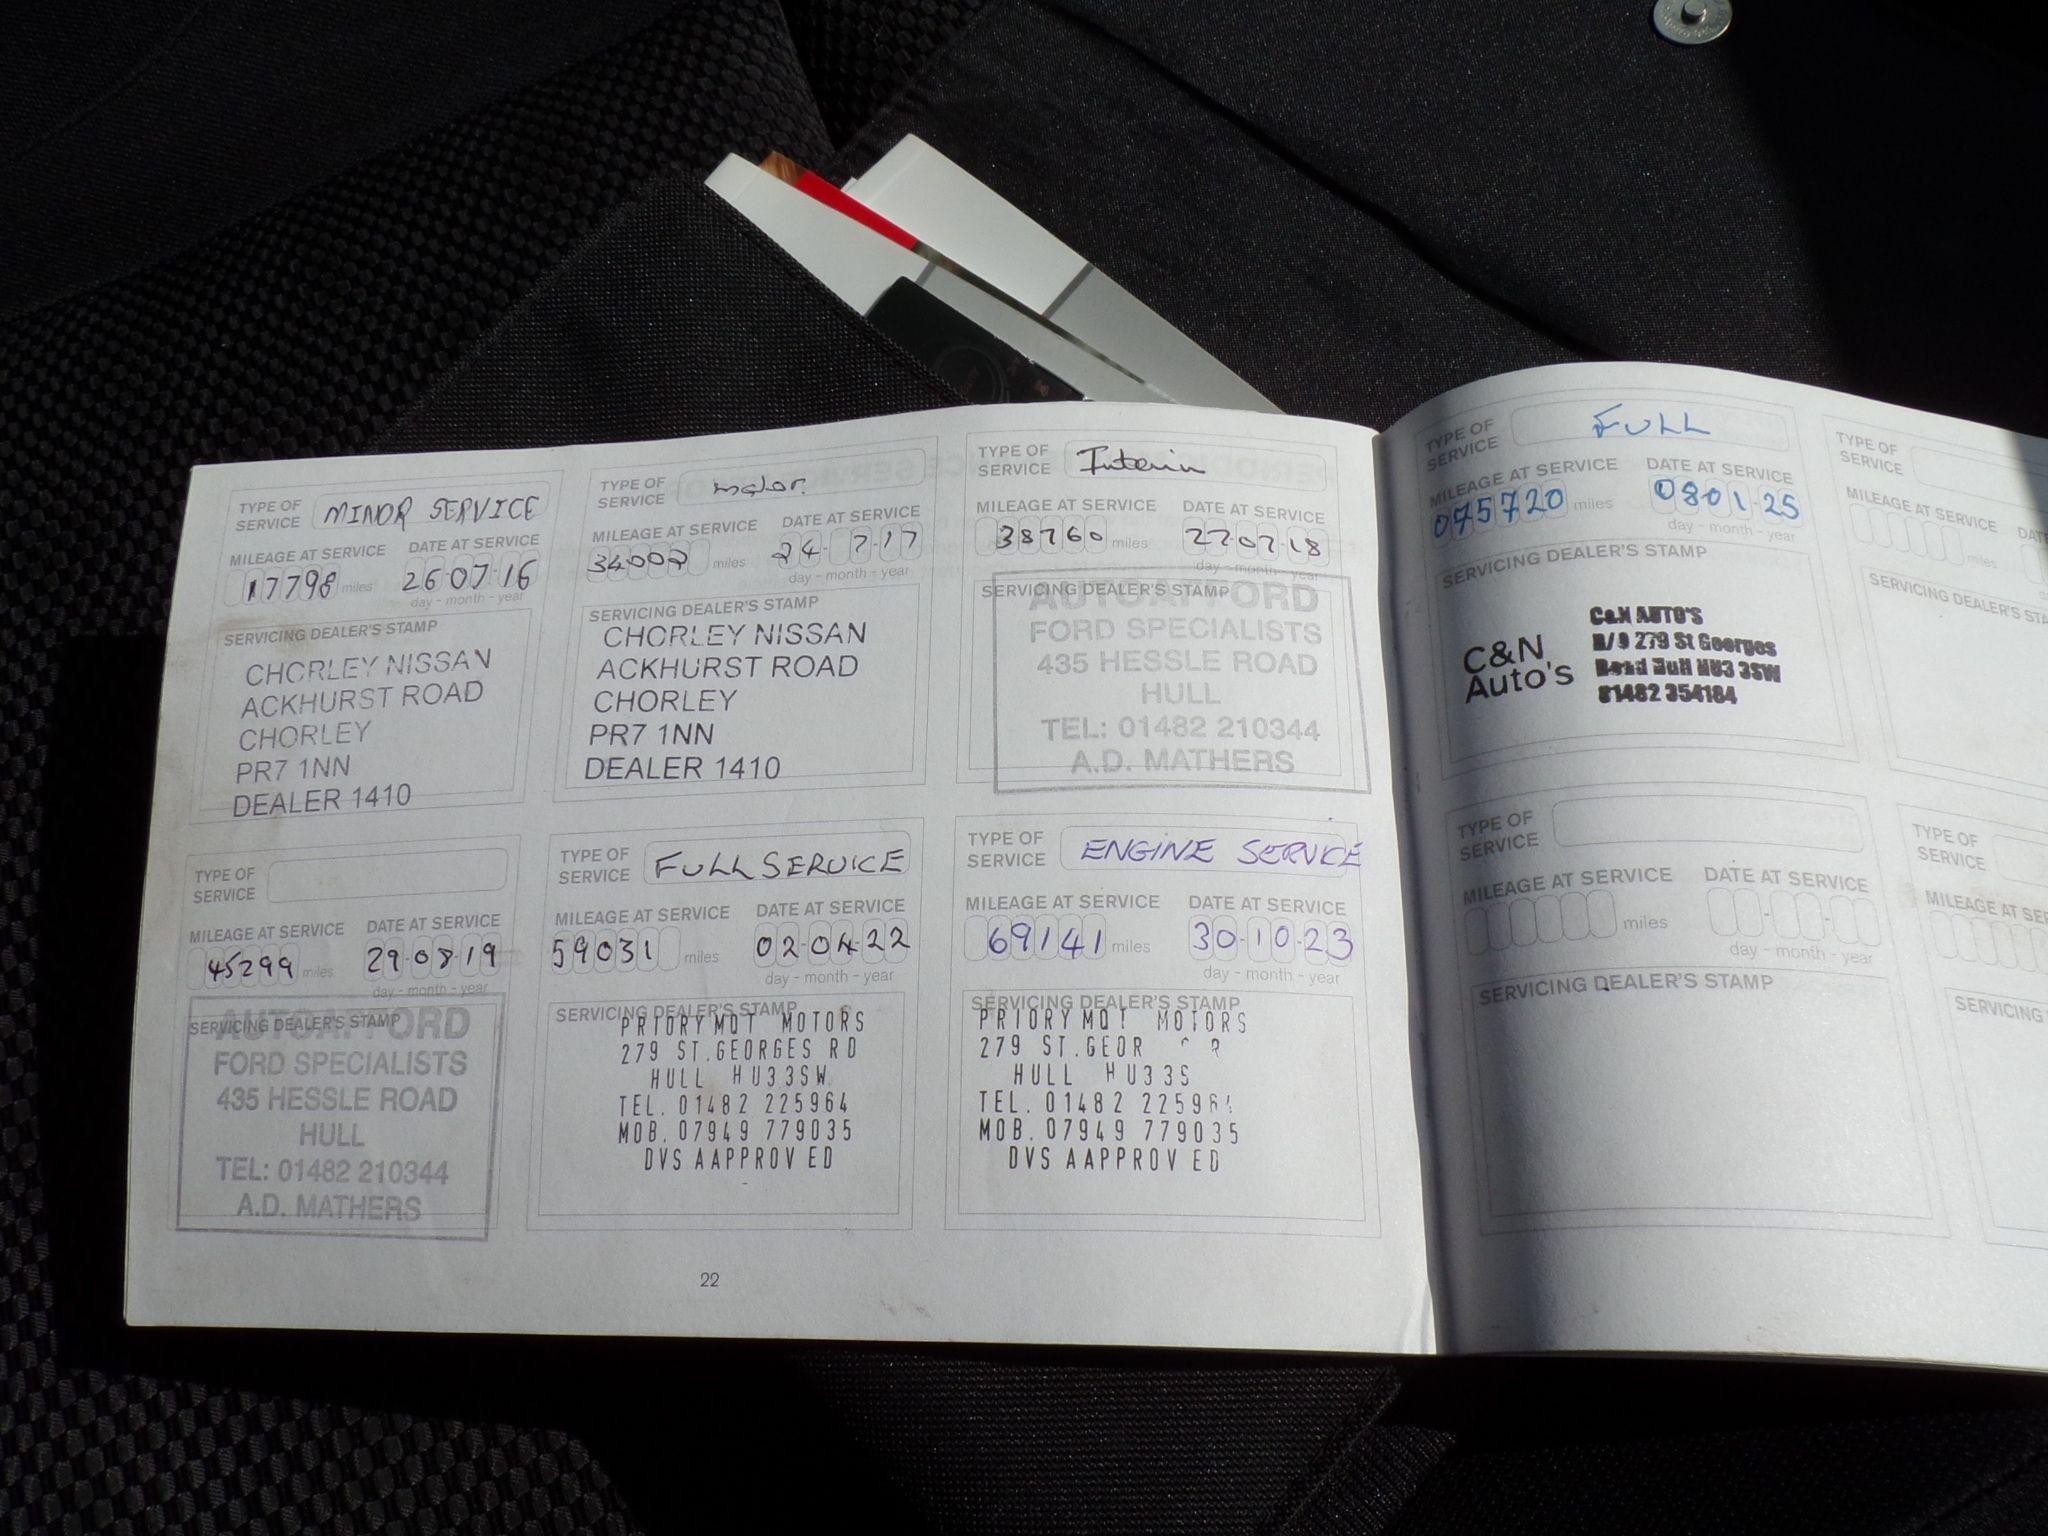 TYPE OF SERVICE MINOR SERVICE
MILEAGE AT SERVICE DATE AT SERVICE
17798 miles 26-07-16
day - month - year
SERVICING DEALER'S STAMP
CHORLEY NISSAN
ACKHURST ROAD
CHORLEY
PR7 1NN
DEALER 1410
TYPE OF SERVICE major.
MILEAGE AT SERVICE DATE AT SERVICE
34002 miles 24-7-17
day - month - year
SERVICING DEALER'S STAMP
CHORLEY NISSAN
ACKHURST ROAD
CHORLEY
PR7 1NN
DEALER 1410
TYPE OF SERVICE Interim
MILEAGE AT SERVICE DATE AT SERVICE
38760 miles 27-07-18
day - month - year
SERVICING DEALER'S STAMP
AUTOAFFORD
FORD SPECIALISTS
435 HESSLE ROAD
HULL
TEL: 01482 210344
A.D. MATHERS
TYPE OF SERVICE
MILEAGE AT SERVICE DATE AT SERVICE
45299 miles 29-08-19
day - month - year
SERVICING DEALER'S STAMP
AUTOAFFORD
FORD SPECIALISTS
435 HESSLE ROAD
HULL
TEL: 01482 210344
A.D. MATHERS
TYPE OF SERVICE FULL SERVICE
MILEAGE AT SERVICE DATE AT SERVICE
59031 miles 02-04-22
day - month - year
SERVICING DEALER'S STAMP
PRIORY MOT MOTORS
279 ST.GEORGES RD
HULL HU33SW
TEL. 01482 225964
MOB. 07949 779035
DVS AAPPROVED
TYPE OF SERVICE ENGINE SERVICE
MILEAGE AT SERVICE DATE AT SERVICE
69141 miles 30-10-23
day - month - year
SERVICING DEALER'S STAMP
PRIORY MOT MOTORS
279 ST.GEOR R
HULL HU33S
TEL. 01482 225964
MOB. 07949 779035
DVS AAPPROVED
22
TYPE OF SERVICE FULL
MILEAGE AT SERVICE DATE AT SERVICE
075720 miles 08-01-25
day - month - year
SERVICING DEALER'S STAMP
C&N Auto's
C&N AUTO'S
R/O 279 St Georges
Road Hull HU3 3SW
01482 354184
TYPE OF SERVICE
MILEAGE AT SERVICE
miles
SERVICING DEALER'S
TYPE OF SERVICE
MILEAGE AT SERVICE DATE AT SERVICE
miles
day - month - year
SERVICING DEALER'S STAMP
TYPE OF SERVICE
MILEAGE AT
SERVICING